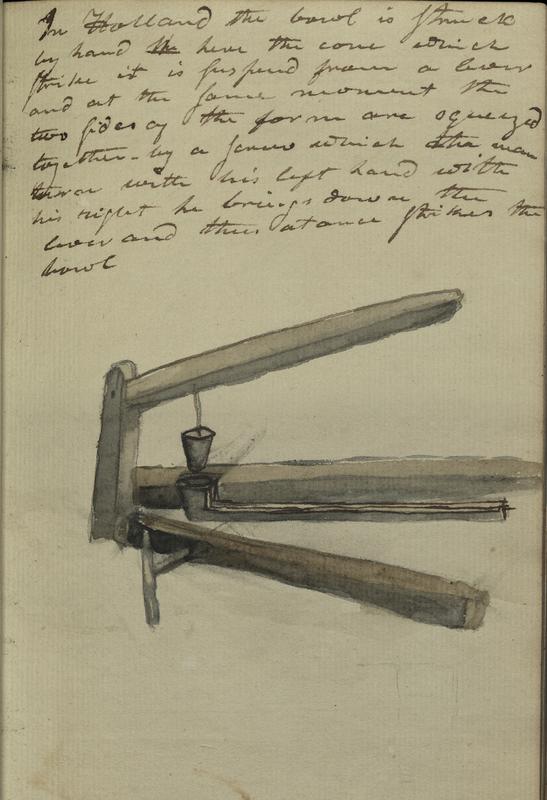 In Holland the bowl is struck
by hand here the cone which
strike it is suspend from a lever
and at the same moment the
two sides of the form are squeezed
together - by a screw which the man
turn with his left hand with
his right he brings down the
lever and thus at ance strikes the
bowl